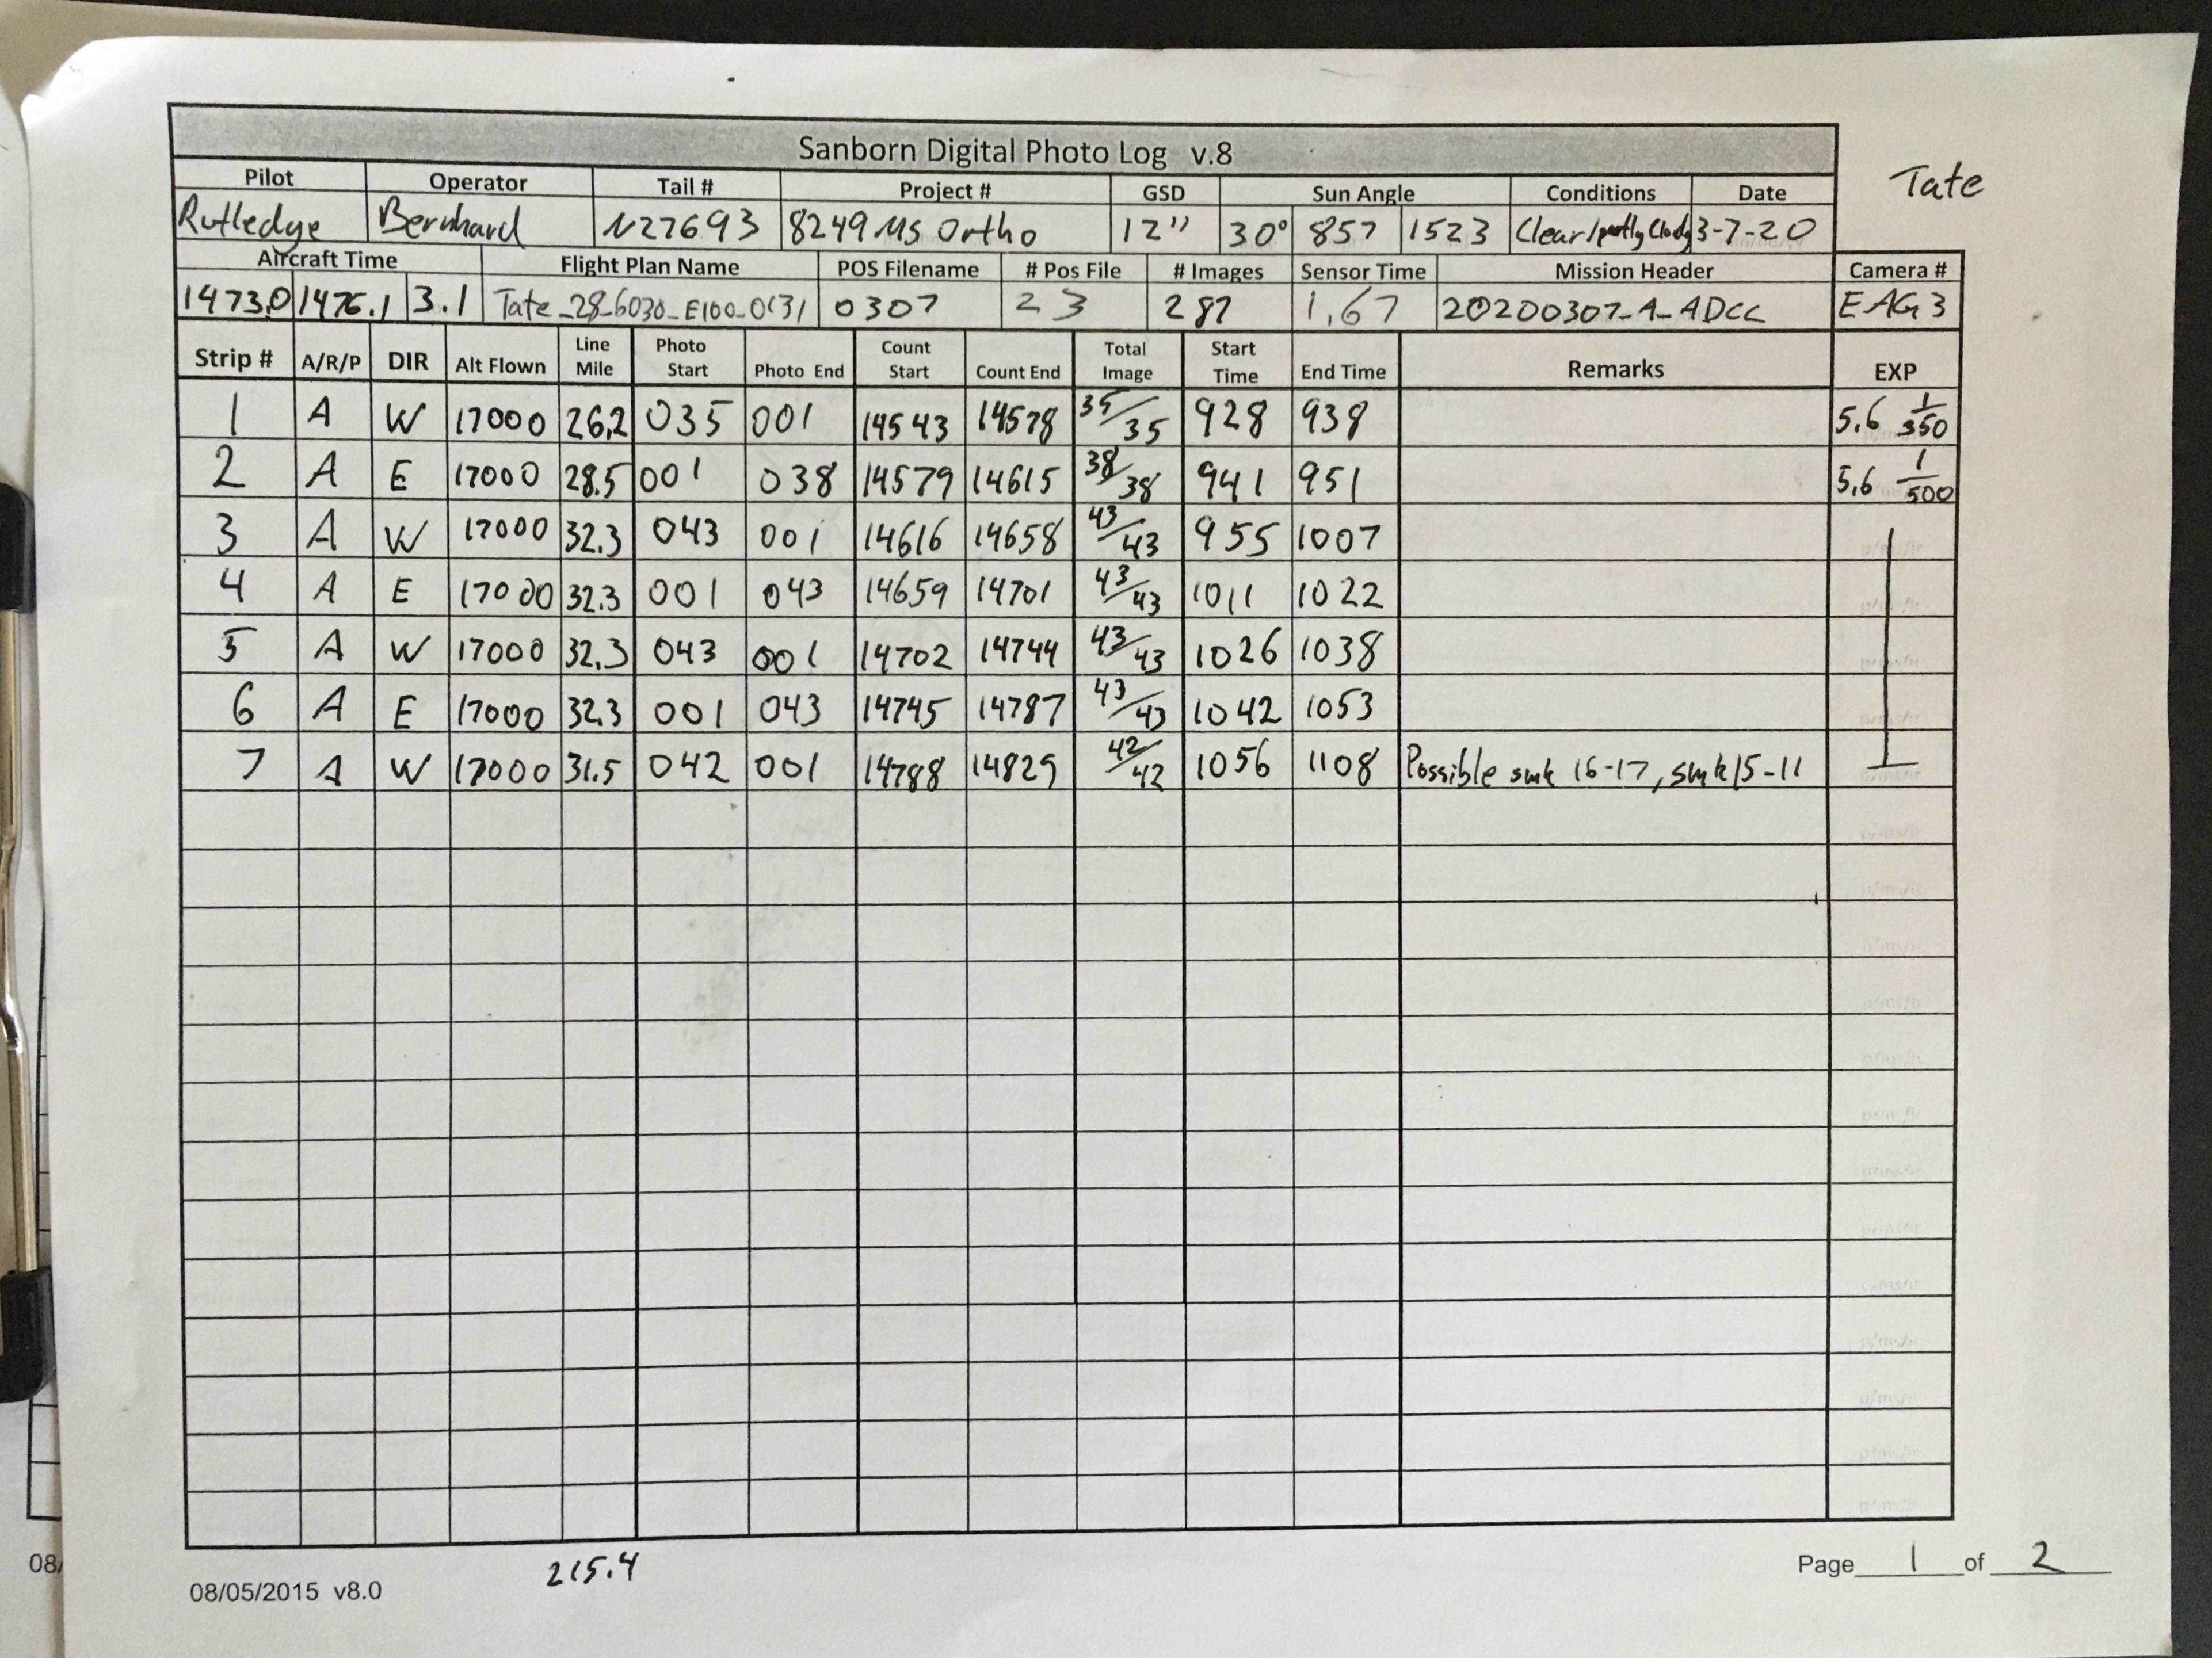 Sanborn Digital Photo Log v.8
Tate
Pilot Operator Tail # Project # GSD Sun Angle Conditions Date
Rutledge Bernhard N27693 8249 MS Ortho 12" 30° 857 1523 Clear/partly Clody 3-7-20
Aircraft Time Flight Plan Name POS Filename # Pos File # Images Sensor Time Mission Header Camera #
1473.0 1476.1 3.1 0307 23 287 1.67 20200307-A-ADCC EAG3
Strip # A/R/P DIR Alt Flown Line Mile Photo Start Photo End Count Start Count End Total Image Start Time End Time Remarks EXP
1 A W 17000 26.2 035 001 14543 14578 35/35 928 938 5.6 1/350
2 A E 17000 28.5 001 038 14579 14615 38/38 941 951 5.6 1/500
3 A W 17000 32.3 043 001 14616 14658 43/43 955 1007
4 A E 17000 32.3 001 043 14659 14701 43/43 1011 1022
5 A W 17000 32.3 043 001 14702 14744 43/43 1026 1038
6 A E 17000 32.3 001 043 14745 14787 43/43 1042 1053
7 A W 17000 31.5 042 001 14788 14829 42/42 1056 1108 Possible smk 16-17, smk 15-11
215.4
08/05/2015 v8.0
Page 1 of 2
08/